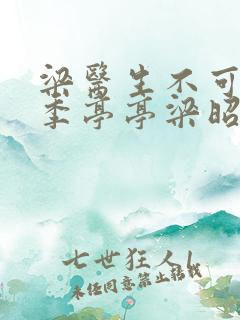 梁醫生不可
李亭亭梁昭
七世狂人l
未经同意禁止转载